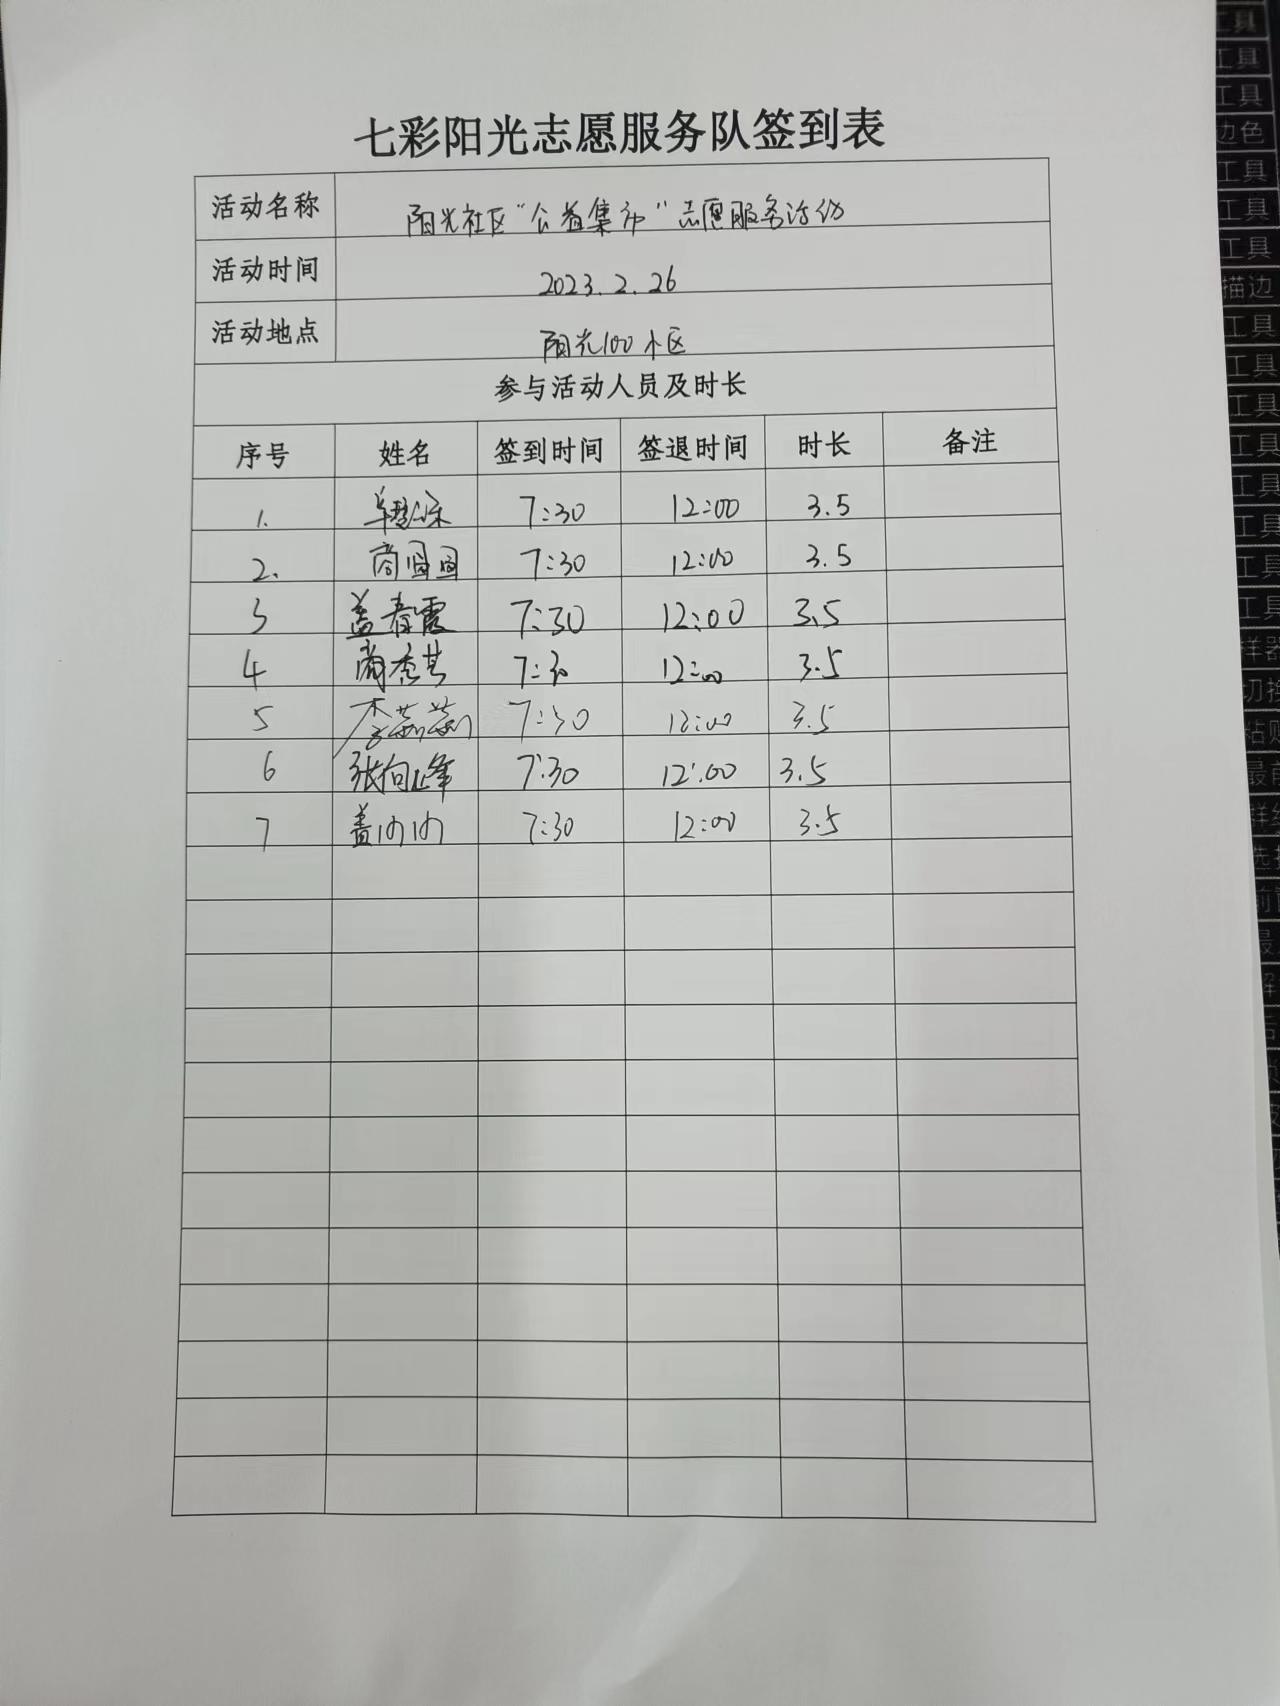 七彩阳光志愿服务队签到表
活动名称 阳光社区“公益集市”志愿服务活动
活动时间 2023.2.26
活动地点 阳光100小区
参与活动人员及时长
序号 姓名 签到时间 签退时间 时长 备注
1. 7:30 12:00 3.5
2. 商圆圆 7:30 12:00 3.5
3 盖春霞 7:30 12:00 3.5
4 7:30 12:00 3.5
5 李莉莉 7:30 12:00 3.5
6 张向峰 7:30 12:00 3.5
7 7:30 12:00 3.5
工具
工具
工具
边色
工具
工具
工具
描边
工具
工具
工具
工具
工具
工具
工具
工具
样器
切换
粘贴
最前